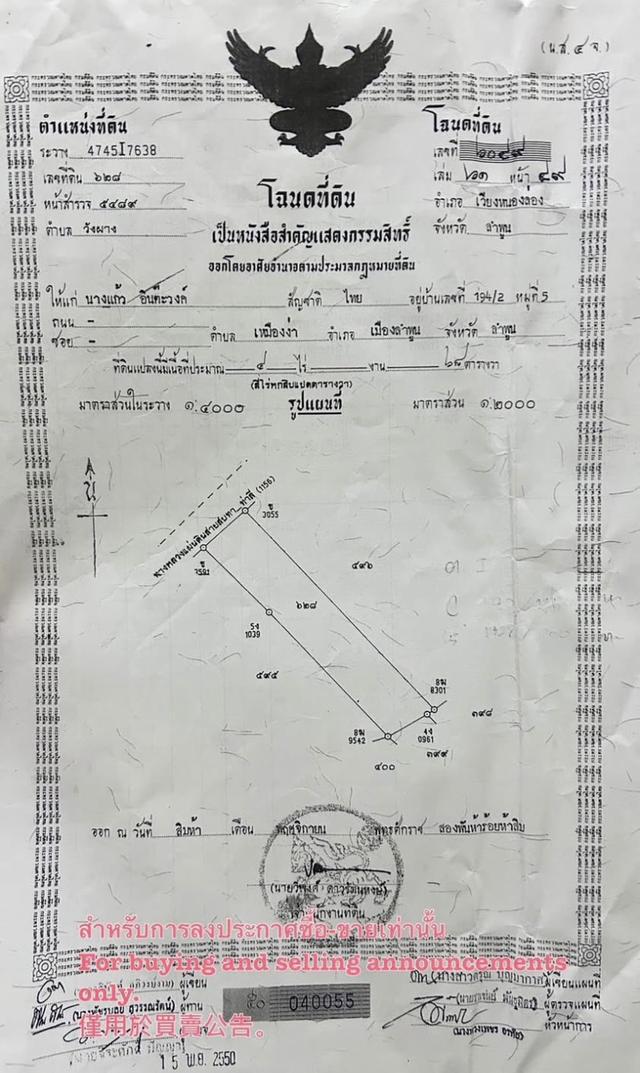 (น.ส.๔ จ.)
ตำแหน่งที่ดิน
ระวาง 4745I7638
เลขที่ดิน ๖๒๘
หน้าสำรวจ ๕๔๘๙
ตำบล วังผาง
โฉนดที่ดิน
เลขที่
เล่ม ๖๑ หน้า ๔๙
อำเภอ เวียงหนองล่อง
จังหวัด ลำพูน
โฉนดที่ดิน
เป็นหนังสือสำคัญแสดงกรรมสิทธิ์
ออกโดยอาศัยอำนาจตามประมวลกฎหมายที่ดิน
ให้แก่ นางแก้ว อินต๊ะวงค์ สัญชาติ ไทย อยู่บ้านเลขที่ 194/2 หมู่ที่ 5
ถนน -
ซอย - ตำบล เหมืองง่า อำเภอ เมืองลำพูน จังหวัด ลำพูน
ที่ดินแปลงนี้มีเนื้อที่ประมาณ ๔ ไร่ - งาน ๖๘ ตารางวา
(สี่ไร่หกสิบแปดตารางวา)
มาตราส่วนในระวาง ๑:๔๐๐๐ รูปแผนที่ มาตราส่วน ๑:๒๐๐๐
น
ทางหลวงแผ่นดินสายสบทา ท่าลี่ (1156)
ช
3055
ช
๕๙๖
๖๒๘
5ง
1039
๕๙๕
8ฆ
8301
๓๙๘
8ฆ
9542
4ง
0961
๓๙๙
๔๐๐
ออก ณ วันที่ สิบห้า เดือน พฤศจิกายน พุทธศักราช สองพันห้าร้อยห้าสิบ
เจ้าพนักงานที่ดิน
สำหรับการลงประกาศซื้อ-ขายเท่านั้น
For buying and selling announcements
only.
僅用於買賣公告。
ผู้เขียน
ผู้ทาน
๕๐ 040055
ผู้เขียนแผนที่
ผู้ตรวจแผนที่
หัวหน้าการ
15 พ.ย. 2550